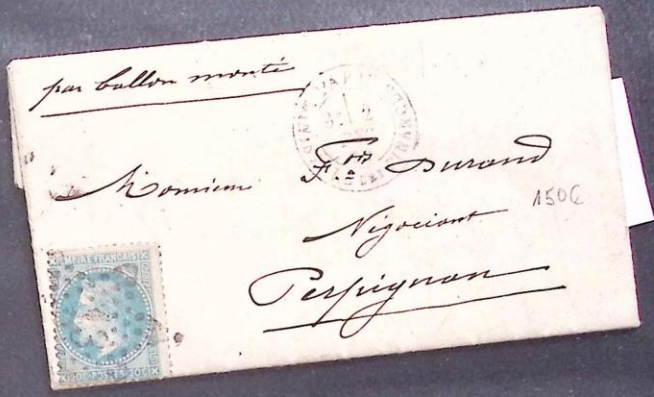 par ballon monté
Monsieur Fois Durand
Négociant
Perpignan
150€
EMPIRE FRANÇAIS
20 C POSTES 20 C